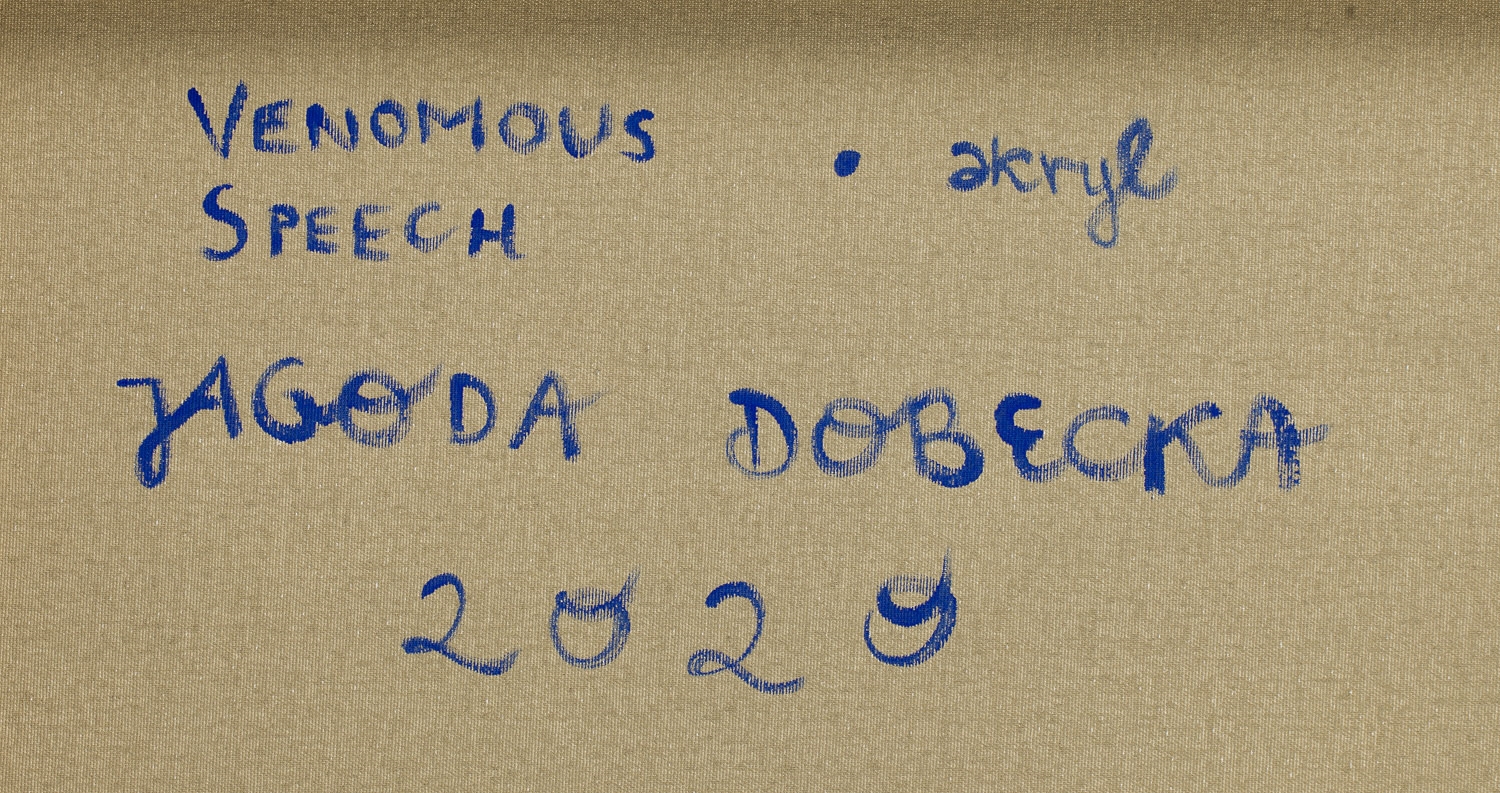 VENOMOUS
SPEECH
• akryl
JAGODA DOBECKA
2020